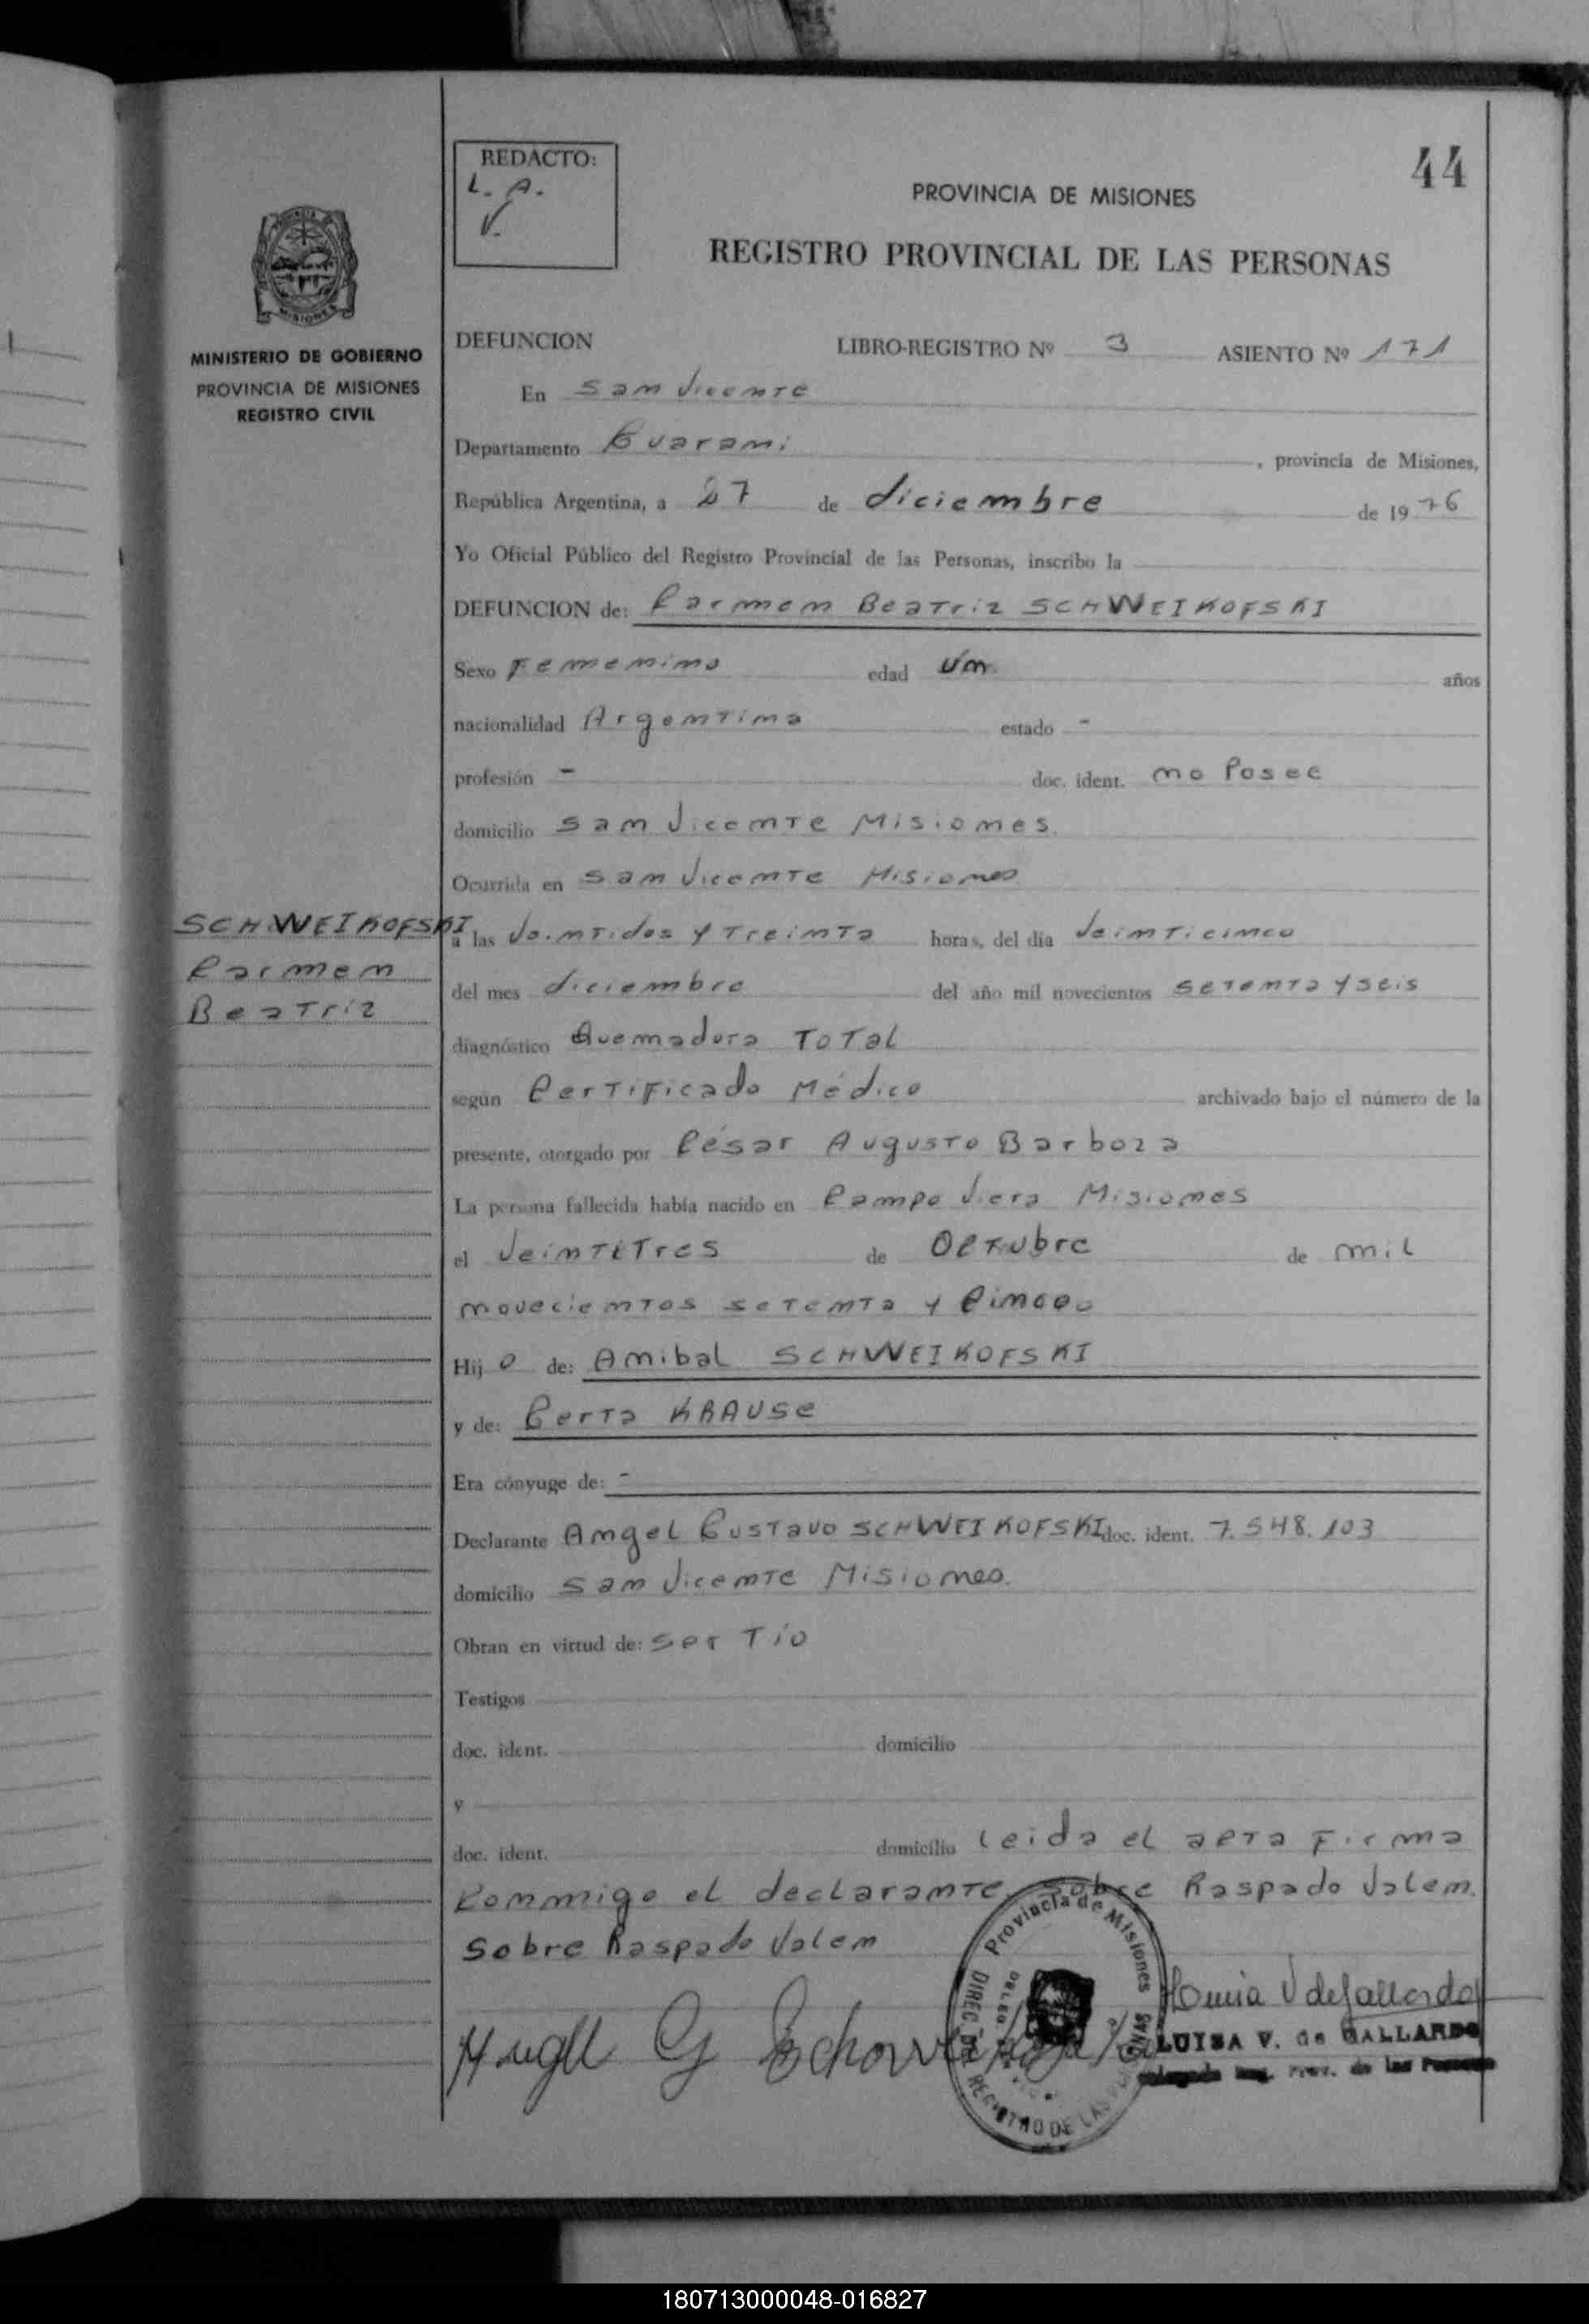 44
REDACTO:
L. A.
V.
PROVINCIA DE MISIONES
REGISTRO PROVINCIAL DE LAS PERSONAS
MISIONES
MINISTERIO DE GOBIERNO
PROVINCIA DE MISIONES
REGISTRO CIVIL
DEFUNCION LIBRO-REGISTRO Nº 3 ASIENTO Nº 171
En San Vicente
Departamento Guarani, provincia de Misiones,
República Argentina, a 27 de diciembre de 1976
Yo Oficial Público del Registro Provincial de las Personas, inscribo la
DEFUNCION de: Carmen Beatriz SCHWEIKOFSKI
Sexo Femenino edad Un. años
nacionalidad Argentina estado -
profesión - doc. ident. no Posee
domicilio San Vicente Misiones.
Ocurrida en San Vicente Misiones
SCHWEIKOFSKI
Carmen
Beatriz
a las Veintidos y Treinta horas, del día Veinticinco
del mes diciembre del año mil novecientos setenta y seis
diagnóstico Quemadura Total
según Certificado Médico archivado bajo el número de la
presente, otorgado por César Augusto Barboza
La persona fallecida había nacido en Campo Viera Misiones
el Veintitres de Octubre de mil
novecientos setenta y Cinco
Hijo de: Anibal SCHWEIKOFSKI
y de: Berta KRAUSe
Era cónyuge de: -
Declarante Angel Gustavo SCHWEIKOFSKI doc. ident. 7.548.103
domicilio San Vicente Misiones.
Obran en virtud de: ser Tio
Testigos
doc. ident. domicilio
y
doc. ident. domicilio Leida el acta Firma
Conmigo el declarante, Sobre Raspado Valen.
Sobre Raspado Valen
Provincia de Misiones
DIREC. DEL REGISTRO DE LAS PERSONAS
LUISA V. de GALLARDO
Delegada Reg. Prov. de las Personas
180713000048-016827